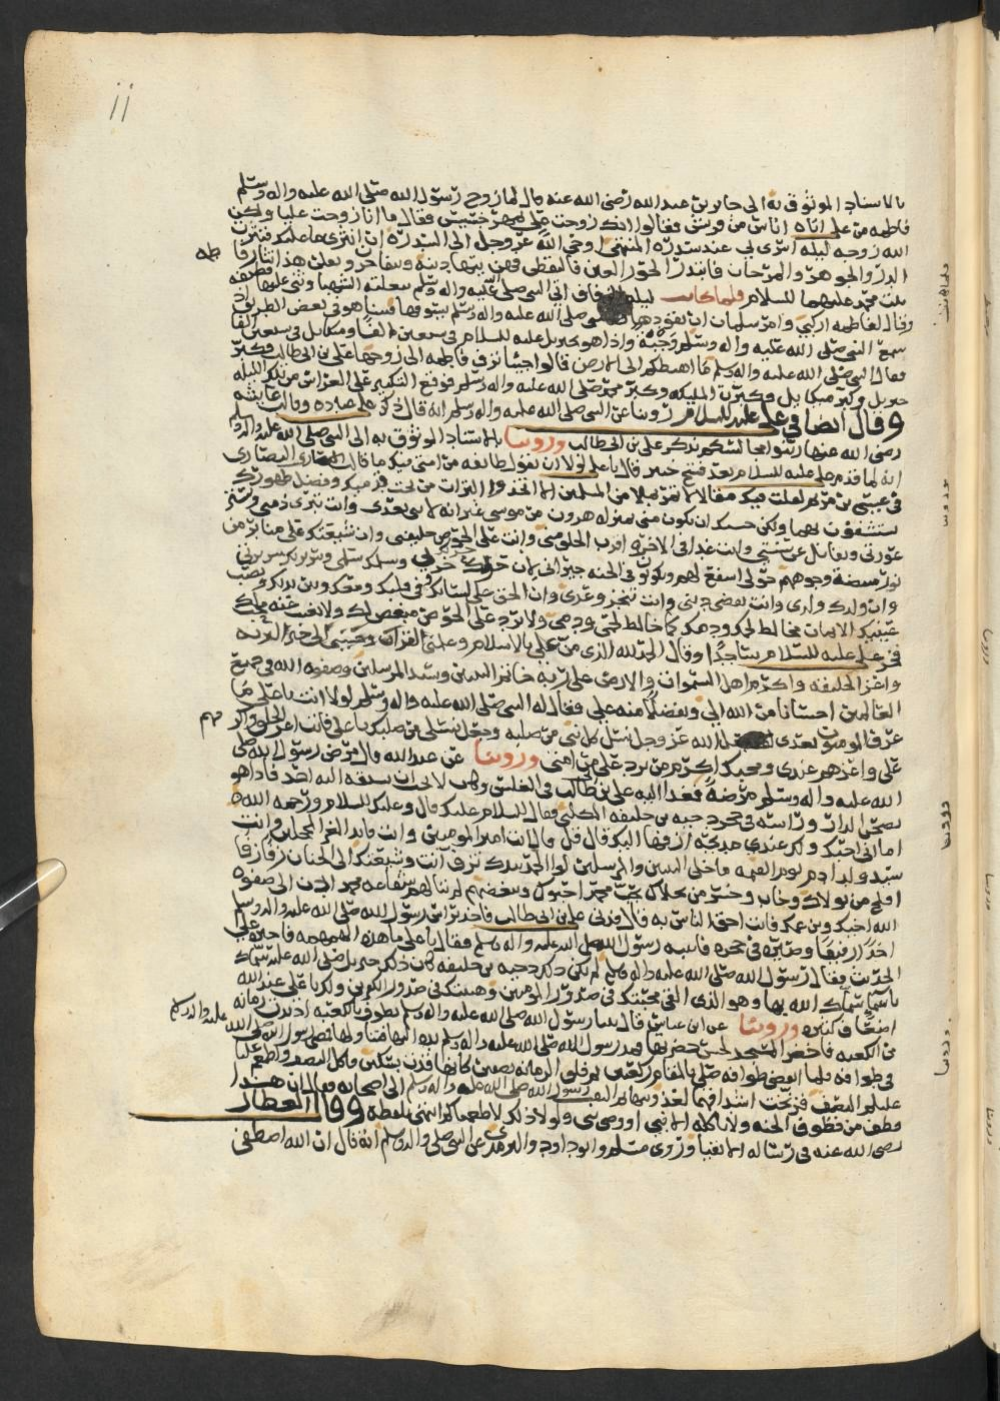 11
بالاسناد الموثوق به الى جابر بن عبد الله رضي الله عنه قال لما زوج رسول الله صلى الله عليه واله وسلم
فاطمه من علي اتاه اناس من قريش فقالوا انك زوجت عليا بمهر خسيس فقال ما انا زوجت عليا ولكن
الله زوجه ليلة اسرى بي عند سدرة المنتهى اوحى الله عز وجل الى السدرة ان انثري ما عليك فنثرت
الدر والجوهر والمرجان فابتدر الحور العين فالتقطن فهن يتهادينه ويتفاخرن ويقلن هذا من نثار فاطمه
بنت محمد عليهما السلام فلما كانت ليلة الزفاف اتى النبي صلى الله عليه واله وسلم ببغلته الشهبا وثنى عليها قطيفه
وقال لفاطمه اركبي وامر سلمان ان يقودها والنبي صلى الله عليه واله وسلم يسوقها فبينا هو في بعض الطريق اذ
سمع النبي صلى الله عليه واله وسلم وجبة واذا هو بجبريل عليه السلام في سبعين الفا وميكايل في سبعين الفا
فقال النبي صلى الله عليه واله وسلم ما اهبطكم الى الارض قالوا جينا نزف فاطمه الى زوجها علي بن ابي طالب وكبر
جبريل وكبر ميكايل وكبرت المليكه وكبر محمد صلى الله عليه واله وسلم فوقع التكبير على العرايس من تلك الليله
وقال ايضا في علي عليه السلام روينا عن النبي صلى الله عليه واله وسلم انه قال ذكر علي عباده وقالت عايشه
رضي الله عنها زينوا مجالسكم بذكر علي بن ابي طالب وروينا بالاسناد الموثوق به الى النبي صلى الله عليه واله وسلم
انه لما قدم علي عليه السلام بعد فتح خيبر قال يا علي لولا ان تقول طايفه من امتي فيك ما قالت النصارى
في عيسى بن مريم لقلت فيك مقالا لا تمر بملا من المسلمين الا اخذوا التراب من تحت قدميك وفضل طهورك
يستشفون بهما ولكن حسبك ان تكون مني بمنزلة هرون من موسى غير انه لا نبي بعدي وانت تبري ذمتي وتستر
عورتي وتقاتل عن سنتي وانت غدا في الاخرة اقرب الخلق مني وانت على الحوض خليفتي وان شيعتك على منابر من
نور مبيضة وجوههم حولي اشفع لهم ويكونون في الجنه جيراني لان حربك حربي وسلمك سلمي وسريرتك سريرتي
وان ولدك ولدي وانت تقضي ديني وانت تنجز وعدي وان الحق على لسانك وفي قلبك ومعك وبين يديك ونصب
عينيك الايمان مخالط لحمك ودمك كما خالط لحمي ودمي ولا يرد علي الحوض مبغض لك ولا يغيب عنه محبك
فخر علي عليه السلام ساجدا وقال الحمد لله الذي من علي بالاسلام وعلمني القران وحببني الى خير البريه
واعز الخليقه واكرم اهل السموات والارض على ربه خاتم النبيين وسيد المرسلين وصفوة الله في جميع
العالمين احسانا من الله الي وتفضلا منه علي فقال له النبي صلى الله عليه واله وسلم لولا انت يا علي ما
عرف المومنون بعدي لقد جعل الله عز وجل نسل كل نبي من صلبه وجعل نسلي من صلبك يا علي فانت اعز الخلق واكرمهم
علي واعزهم عندي ومحبك اكرم من يرد علي من امتي وروينا عن عبد الله قال مرض رسول الله صلى
الله عليه واله وسلم مرضة فغدا اليه علي بن ابي طالب في الغلس وكان لا يحب ان يسبقه اليه احد فاذا هو
بصحن الدار وراسه في حجر دحيه بن خليفه الكلبي فقال السلام عليك قال وعليك السلام ورحمة الله
اما اني احبك ولك عندي مديحة ازفها اليك قال قل قال انت امير المومنين وانت قايد الغر المحجلين وانت
سيد ولد ادم يوم القيمه ما خلا النبيين والمرسلين لواء الحمد بيدك تزف انت وشيعتك الى الجنان زفا زفا
افلح من تولاك وخاب وخسر من تخلاك بحب محمد احبوك وببغضه لم تنالهم شفاعة محمد ادن الى صفوة
الله اخيك وابن عمك فانت احق الناس به قال فدنى علي بن ابي طالب فاخذ براس رسول الله صلى الله عليه واله وسلم
اخذا رفيقا وصيره في حجره فانتبه رسول الله صلى الله عليه واله وسلم فقال يا علي ما هذه الهمهمه فاخبره علي
الحديث فقال رسول الله صلى الله عليه واله وسلم لم يكن ذلك دحيه بن خليفه كان ذلك جبريل صلى الله عليه سماك
باسماء سماك الله بها وهو الذي القى محبتك في صدور المومنين وهيبتك في صدور الكافرين ولك يا علي عند الله
اضعاف كثيره وروينا عن ابن عباس قال بينا رسول الله صلى الله عليه واله وسلم يطوف بالكعبه اذ بدت رمانه
من الكعبه فاخضر المسجد لحسن خضرتها فمد رسول الله صلى الله عليه واله وسلم يده اليها فتناولها ومضى رسول الله صلى الله عليه واله وسلم
في طوافه فلما انقضى طوافه صلى بالمقام ركعتين ثم فلق الرمانه نصفين كانها قدت بسكين فاكل النصف واطعم عليا
عليلم النصف فرنخت اشداقهما لعذوبتها ثم التفت رسول الله صلى الله عليه واله وسلم الى اصحابه فقال ان هذا
قطف من قطوف الجنه ولا ياكله الا نبي او وصي نبي ولولا ذلك لاطعمناكموه انتهى بلفظه وقال العطار
رضي الله عنه في رسالة له ايضا وروى مسلم وابو داود والترمذي عن النبي صلى الله عليه واله وسلم انه قال ان الله اصطفى